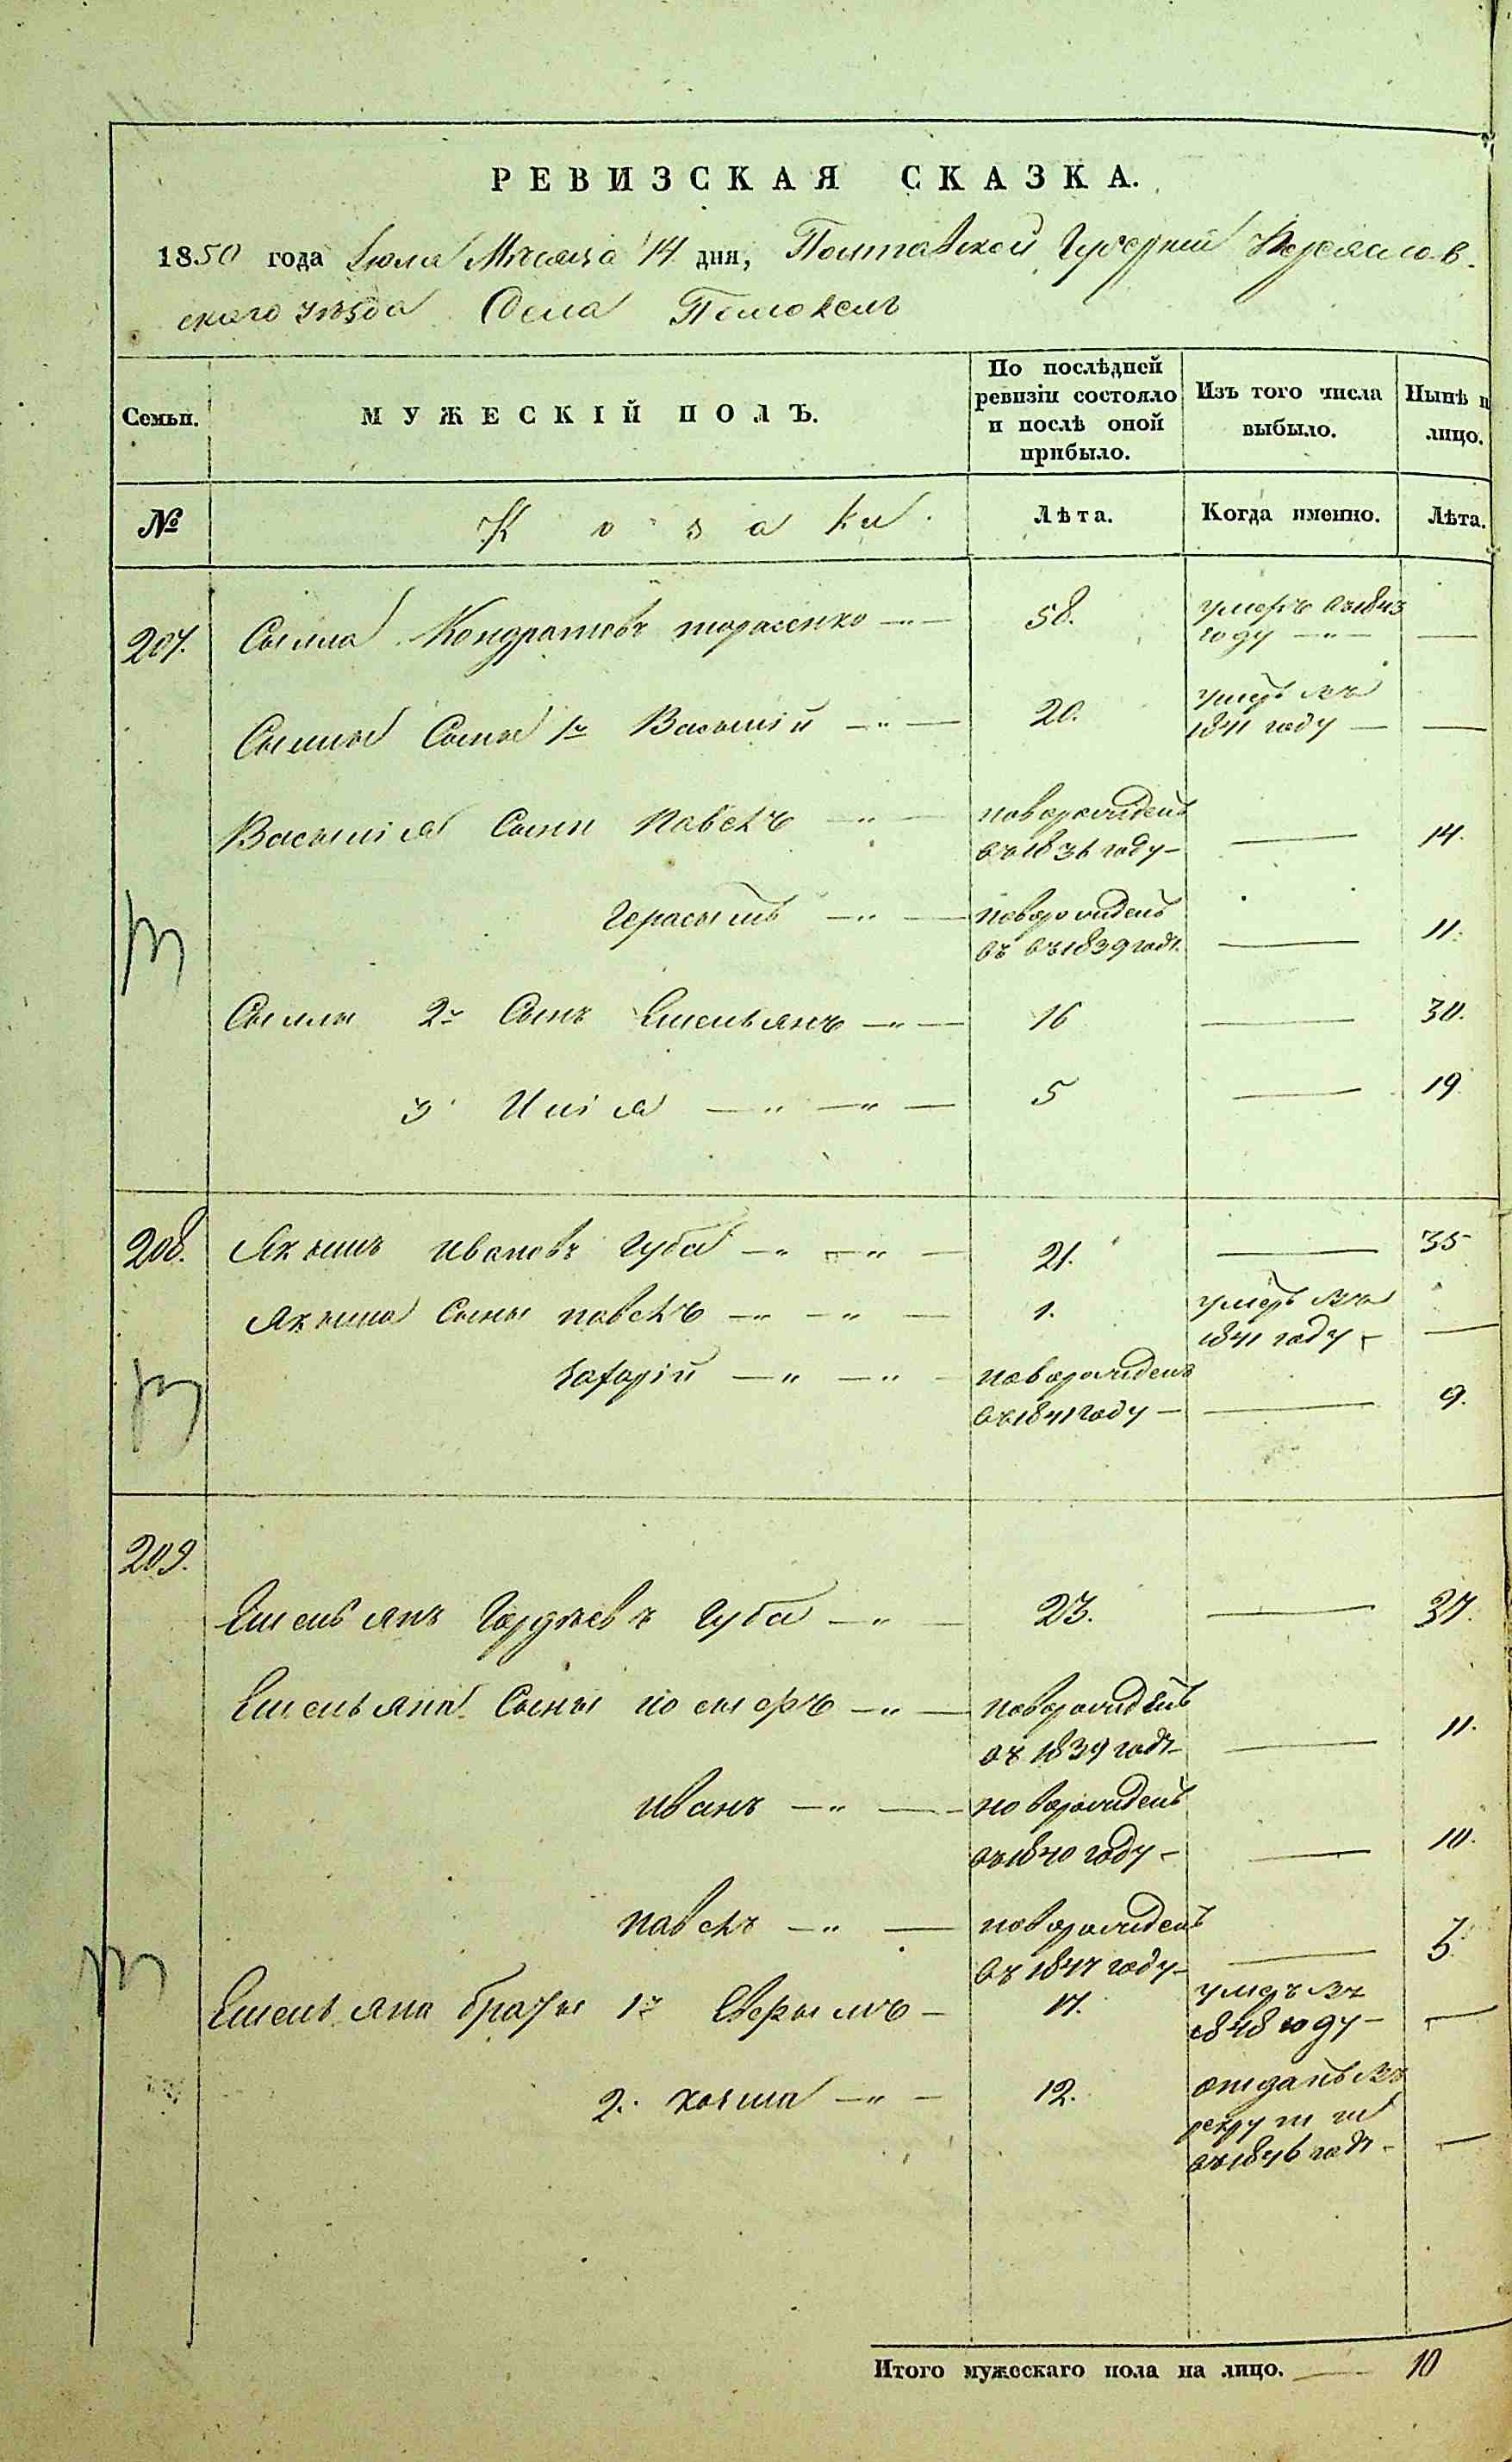 РЕВИЗСКАЯ СКАЗКА.
1850 года Іюля Мѣсяца 14 дня, Полтавской Губерніи Переяслов-
ского уѣзда Села Помоклъ
Семьи.
МУЖЕСКІЙ ПОЛЪ.
По послѣдней ревизіи состояло и послѣ оной прибыло.
Изъ того числа выбыло.
Нынѣ н лицо.
№
Козаки.
Лѣта.
Когда именно.
Лѣта.
207. Сыла Кондратовъ тарасенко — 58. умеръ въ 1843 году —
Сылы Сынъ 1й Василій — 20. умеръ въ 1841 году —
Василія Сыны Павелъ — новорожденъ въ 1836 году — 14.
Герасымъ — новорожденъ въ въ 1839 годе. — 11.
Сылы 2й Сынъ Емельянъ — 16 — 30.
3. Илія — 5 — 19
208. Якымъ Ивановъ Губа — 21. — 35
Якыма Сыны павелъ — 1. умеръ въ 1841 году —
Захарій — новорожденъ въ 1841 году — 9.
209.
Емельянъ Гордѣевъ Губа — 23. — 37.
Емельяна Сыны — новорожденъ въ 1839 годе — 11.
Иванъ — новорожденъ въ 1840 году — 10.
павелъ — новорожденъ въ 1847 году —
Емельяна братья 1й — 17. умеръ въ 1848 году —
2. хома — 12. отданъ въ рекруты въ 1846 годе —
Итого мужескаго пола на лицо. — 10